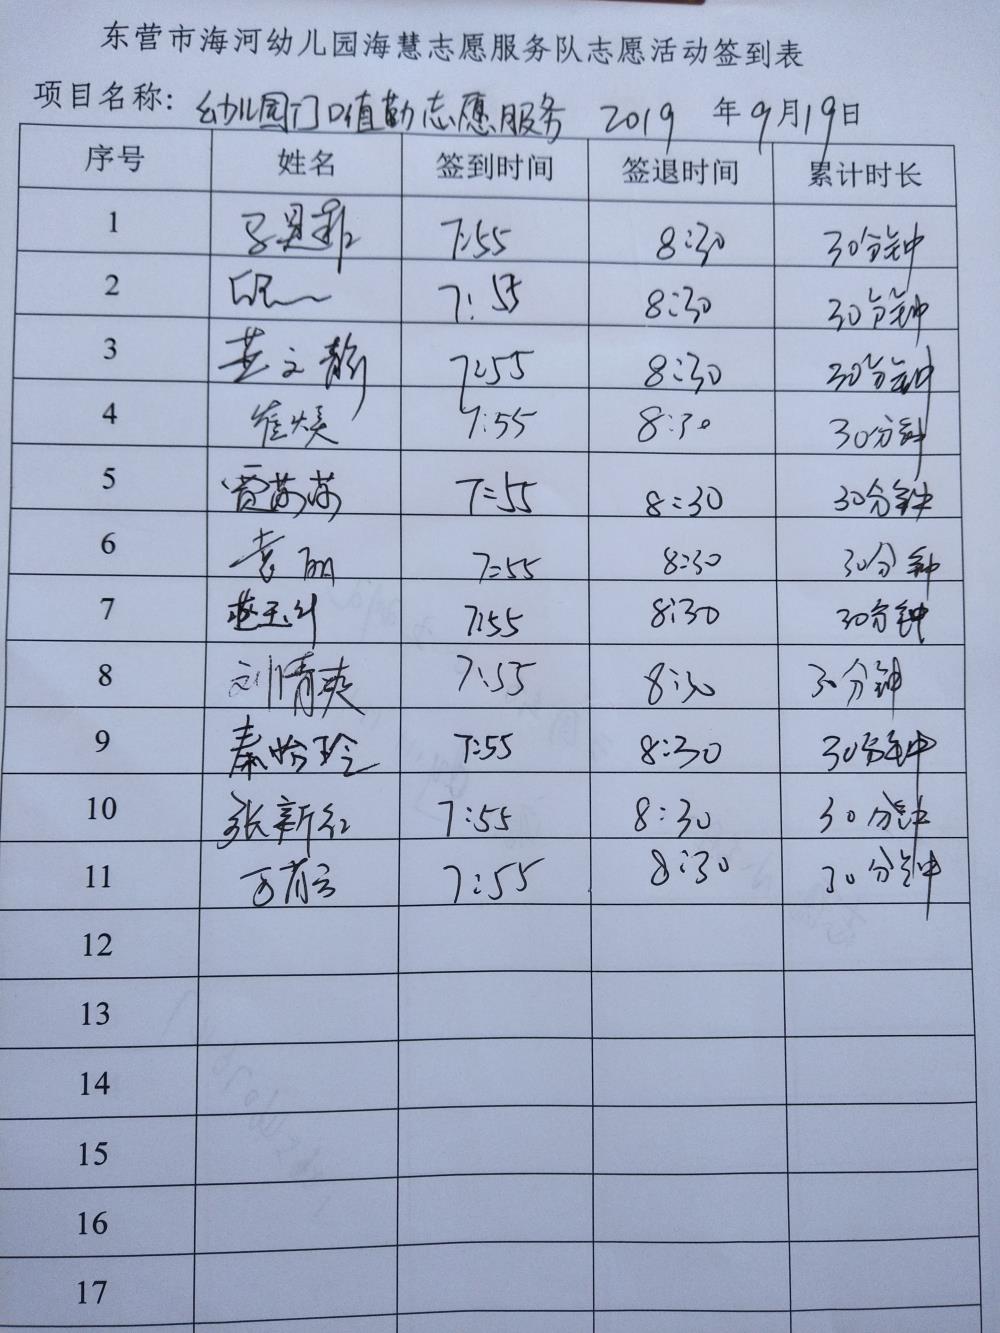 东营市海河幼儿园海慧志愿服务队志愿活动签到表
项目名称: 幼儿园门口值勤志愿服务 2019 年9月19日
序号 姓名 签到时间 签退时间 累计时长
1 7:55 8:30 30分钟
2 7:55 8:30 30分钟
3 文静 7:55 8:30 30分钟
4 崔焕 7:55 8:30 30分钟
5 贾苏苏 7=55 8:30 30分钟
6 袁丽 7:55 8:30 30分钟
7 赵玉 7:55 8:30 30分钟
8 刘倩爽 7:55 8:30 30分钟
9 秦怡玲 7:55 8:30 30分钟
10 张新红 7:55 8:30 30分钟
11 7:55 8:30 30分钟
12
13
14
15
16
17